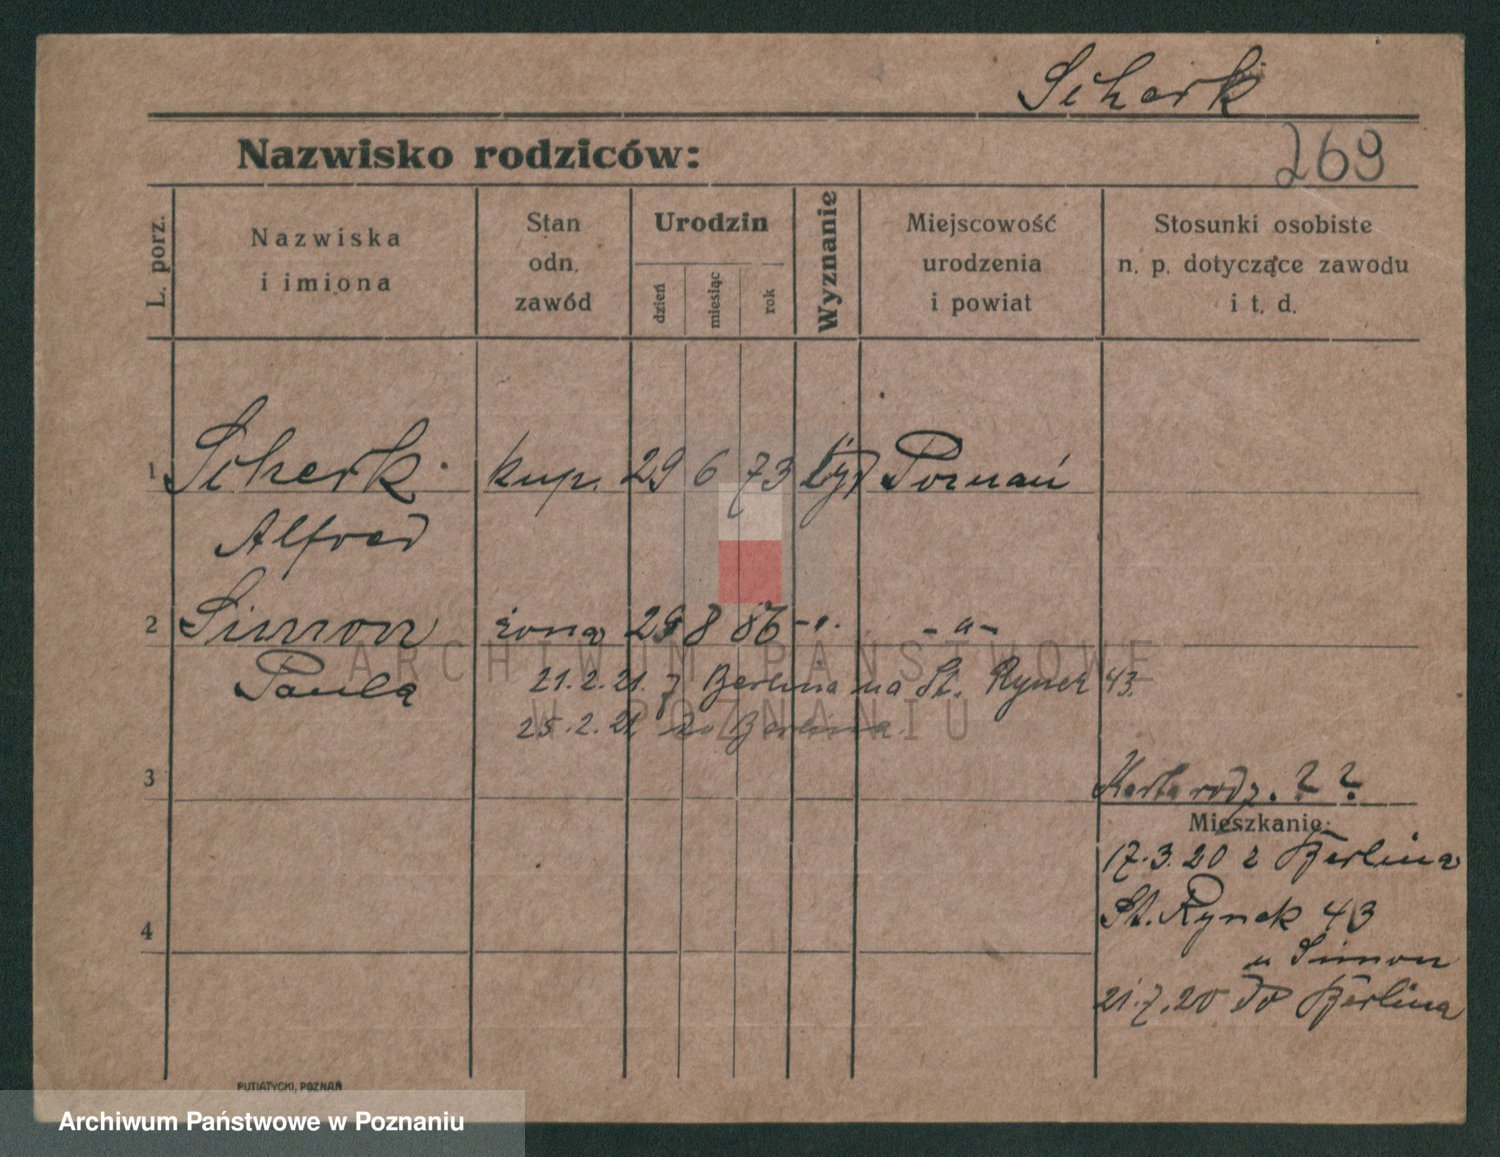 Scherk
Nazwisko rodziców:
269
L. porz.
Nazwiska
i imiona
Stan
odn.
zawód
Urodzin
dzień
miesiąc
rok
Wyznanie
Miejscowość
urodzenia
i powiat
Stosunki osobiste
n. p. dotyczące zawodu
i t. d.
1 Scherk kup. 29 6 73 żyd Poznań
Alfred
2 Simon żona 29 8 86 -"- -"-
Paula
21.2.21. z Berlina na St. Rynek 43.
25.2.21 do Berlina.
3
Karta rodz. ? ?
Mieszkanie:
17.3.20 z Berlina
St. Rynek 43
u Simon
4
21.7.20 do Berlina
PUTIATYCKI, POZNAŃ
ARCHIWUM PAŃSTWOWE
W POZNANIU
Archiwum Państwowe w Poznaniu